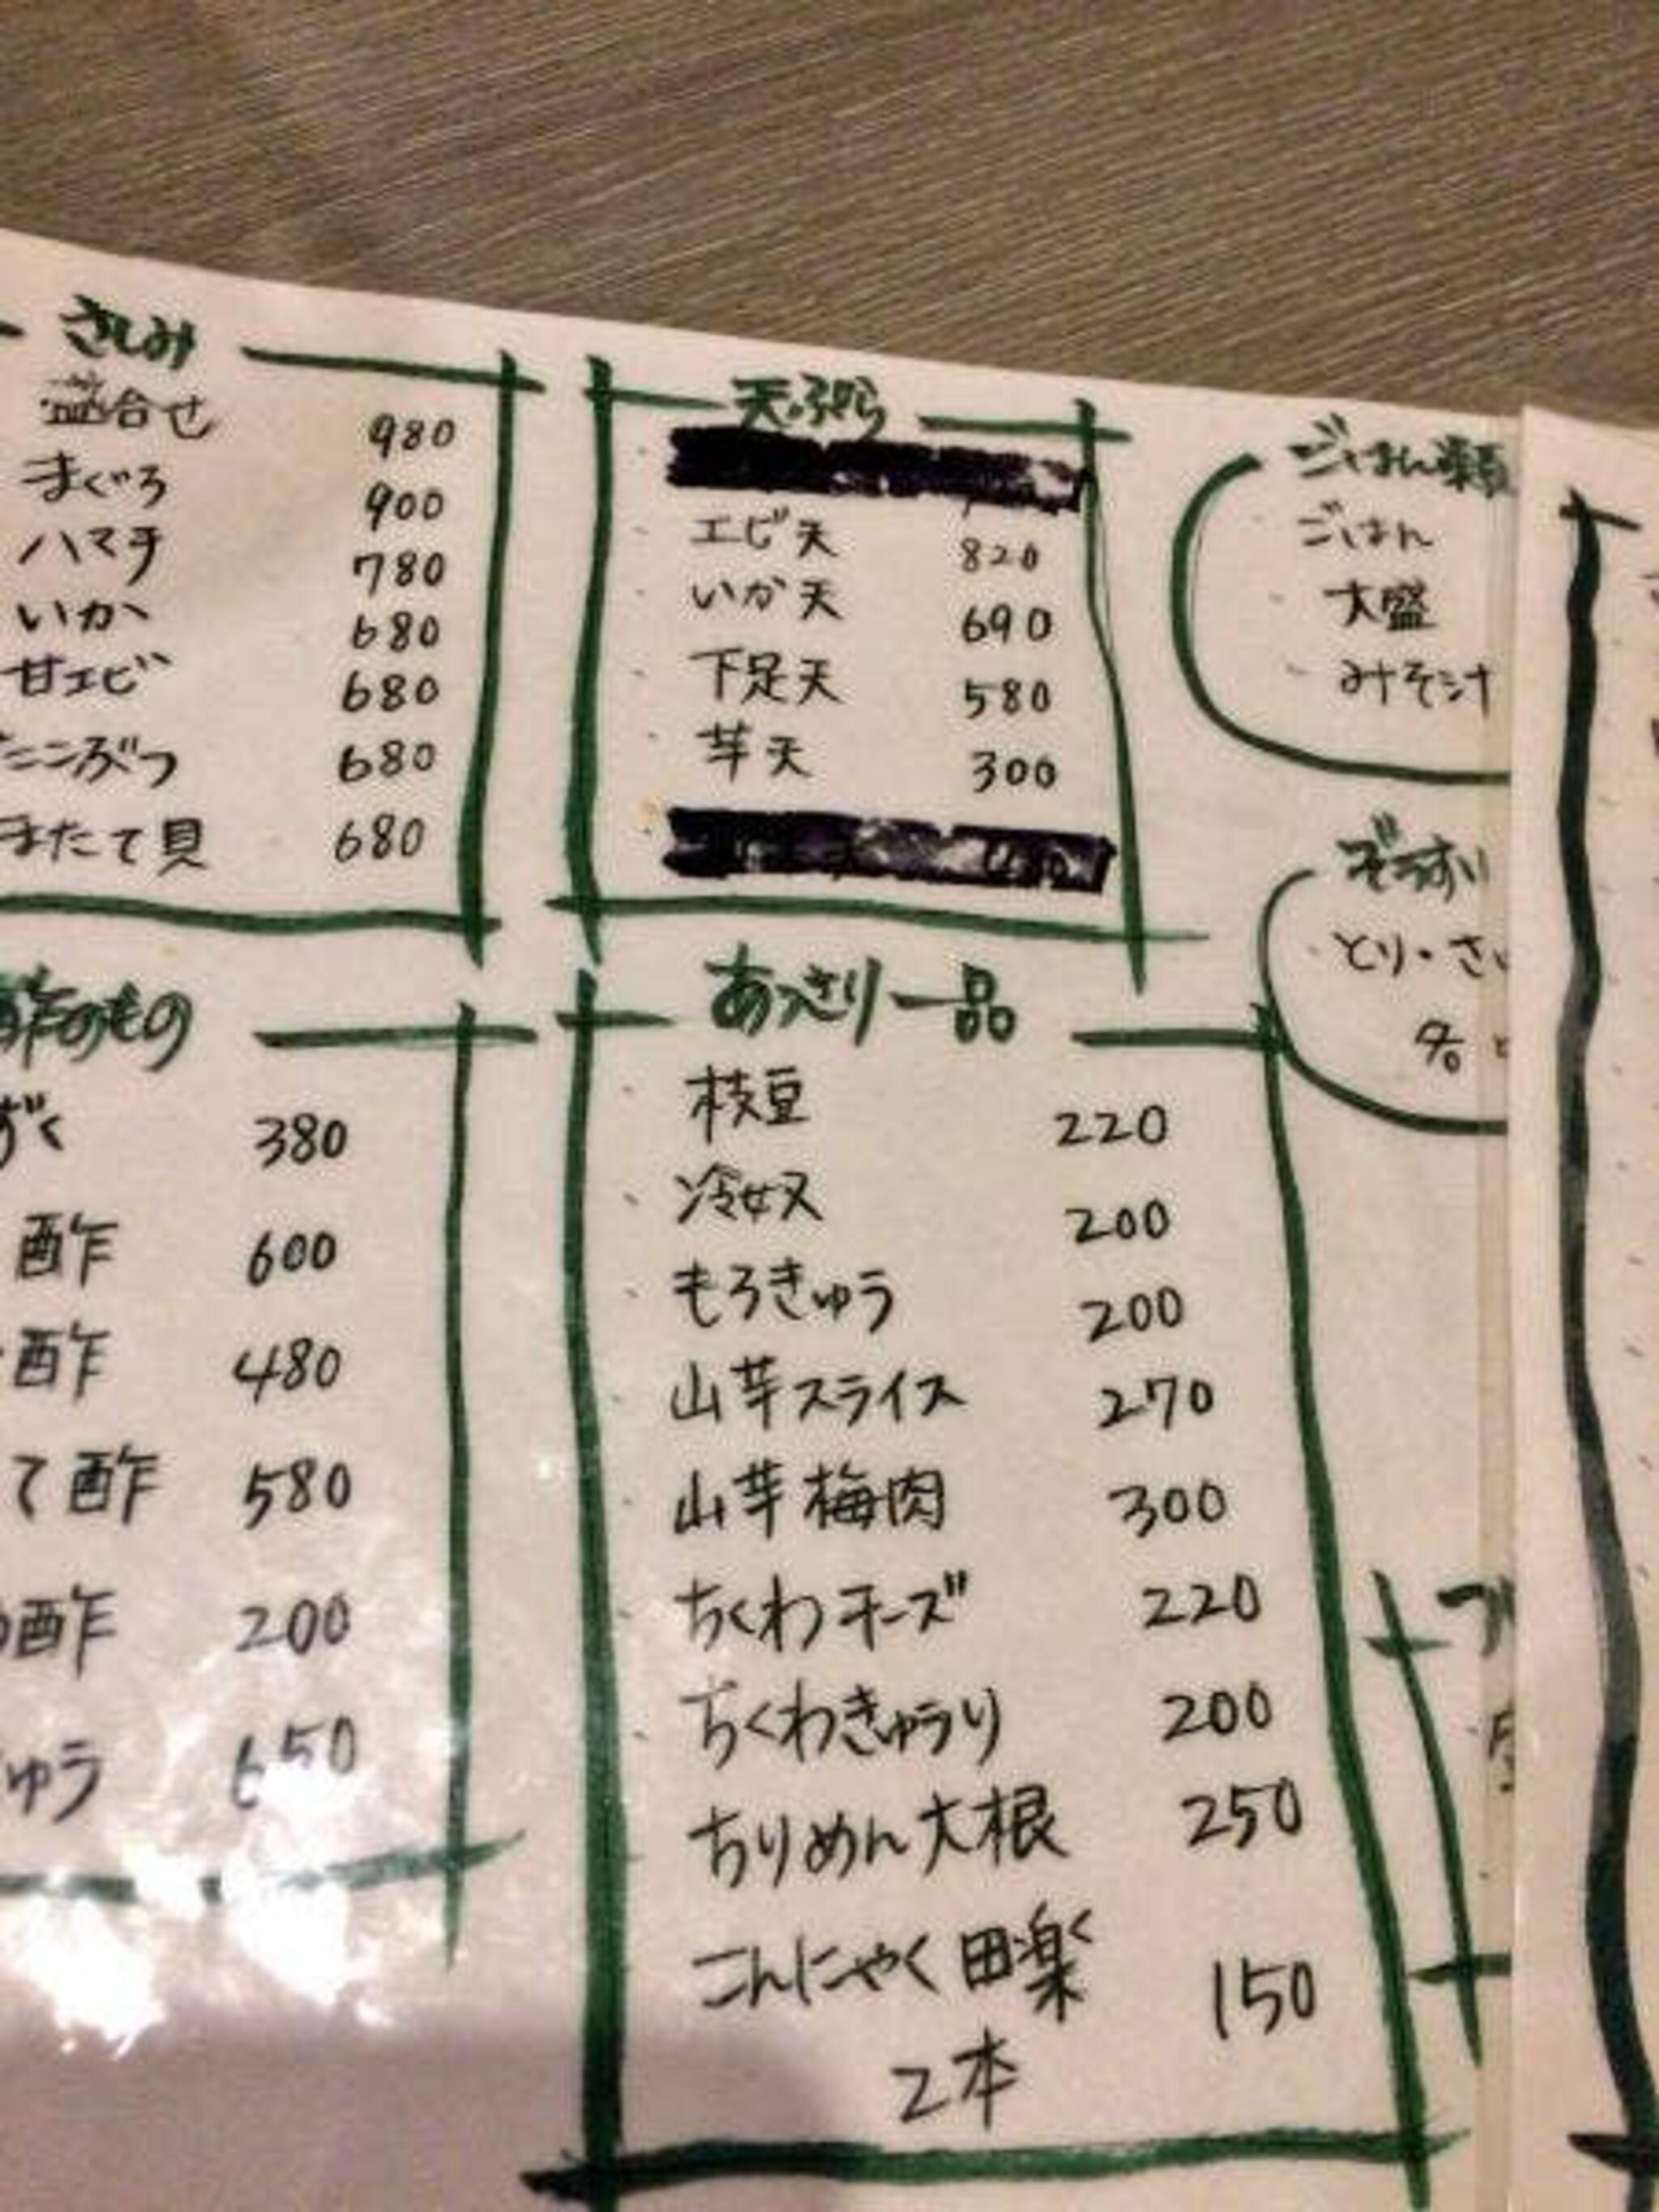 さしみ
盛合せ 980
まぐろ 900
ハマチ 780
いか 680
甘エビ 680
たこぶつ 680
またて貝 680
天ぷら
エビ天 820
いか天 690
下足天 580
芋天 300
ごはん類
ごはん
大盛
みそ汁
ぞうすい
とり・さ
各
酢のもの
ずく 380
酢 600
酢 480
て酢 580
酢 200
ゅう 650
あっさり一品
枝豆 220
冷奴 200
もろきゅう 200
山芋スライス 270
山芋梅肉 300
ちくわチーズ 220
ちくわきゅうり 200
ちりめん大根 250
こんにゃく田楽 150
2本